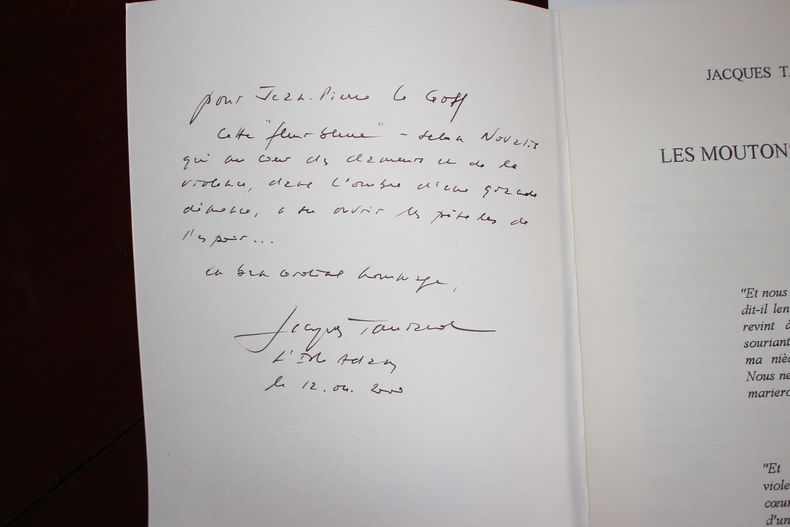 pour Jean-Pierre Le Goff
Cette "fleur bleue" - selon Novalis
qui au cœur des clameurs et de la
violence, dans l'ombre d'une grande
démence, a su ouvrir les pétales de
l'espoir...
en bien cordial hommage,
Jacques
L'Isle Adam
le 12.04.2000
JACQUES T
LES MOUTON
"Et nous
dit-il len
revint d
souriant
ma niè
Nous ne
mariero
"Et
viole
cœur
d'un